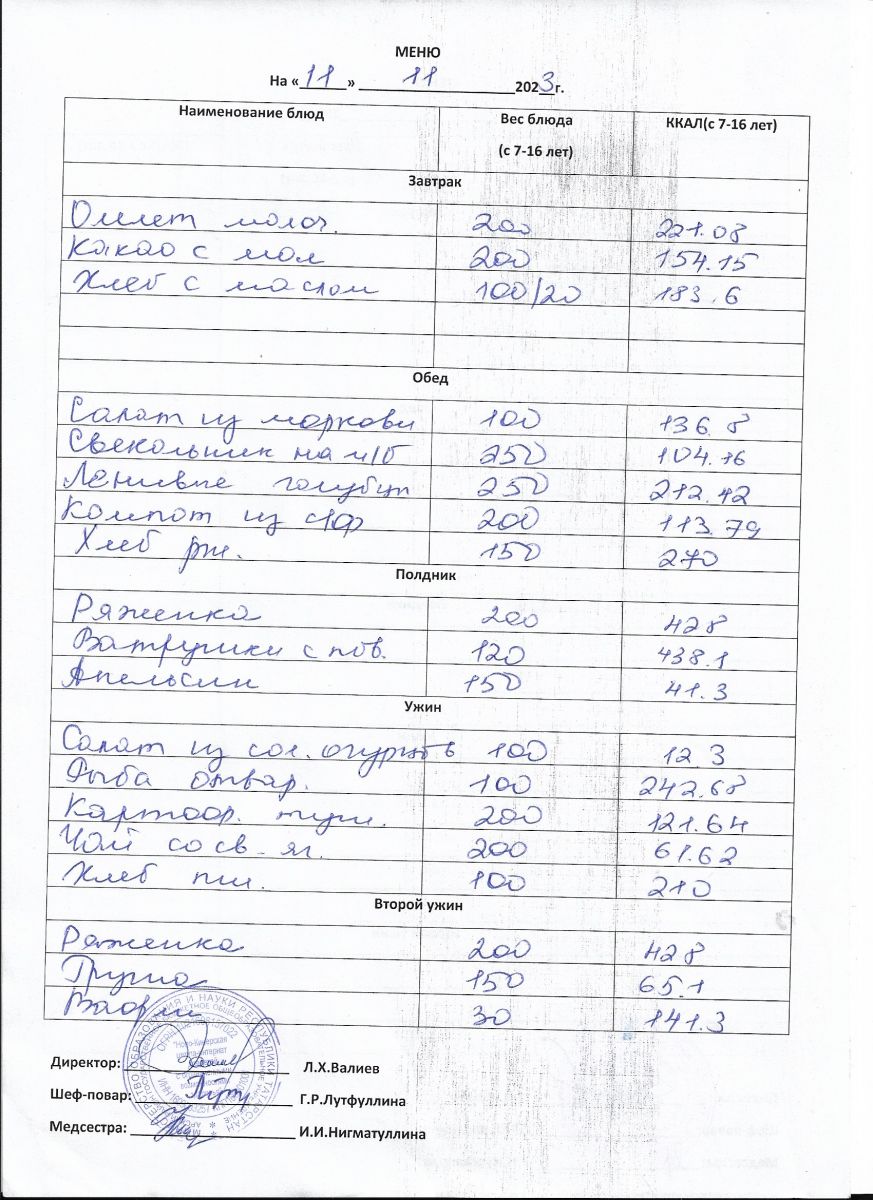 МЕНЮ
На «11» 11 2023г.
Наименование блюд Вес блюда (с 7-16 лет) ККАЛ(с 7-16 лет)
Завтрак
Омлет молоч. 200 221.08
Какао с мол 200 154.15
Хлеб с маслом 100/20 183.6
Обед
Салат из моркови 100 136.8
Свекольник на м/б 250 104.16
Ленивые голубцы 250 212.42
Компот из с/ф 200 113.79
Хлеб рж. 150 270
Полдник
Ряженка 200 428
Ватрушки с пов. 120 438.1
Апельсин 150 41.3
Ужин
Салат из сол. огурцов 100 12.3
Рыба отвар. 100 242.68
Картоф. туш. 200 121.64
Чай со св. яг. 200 61.62
Хлеб пш. 100 210
Второй ужин
Ряженка 200 428
Груша 150 65.1
Вафли 30 141.3
Директор: Л.Х.Валиев
Шеф-повар: Г.Р.Лутфуллина
Медсестра: И.И.Нигматуллина